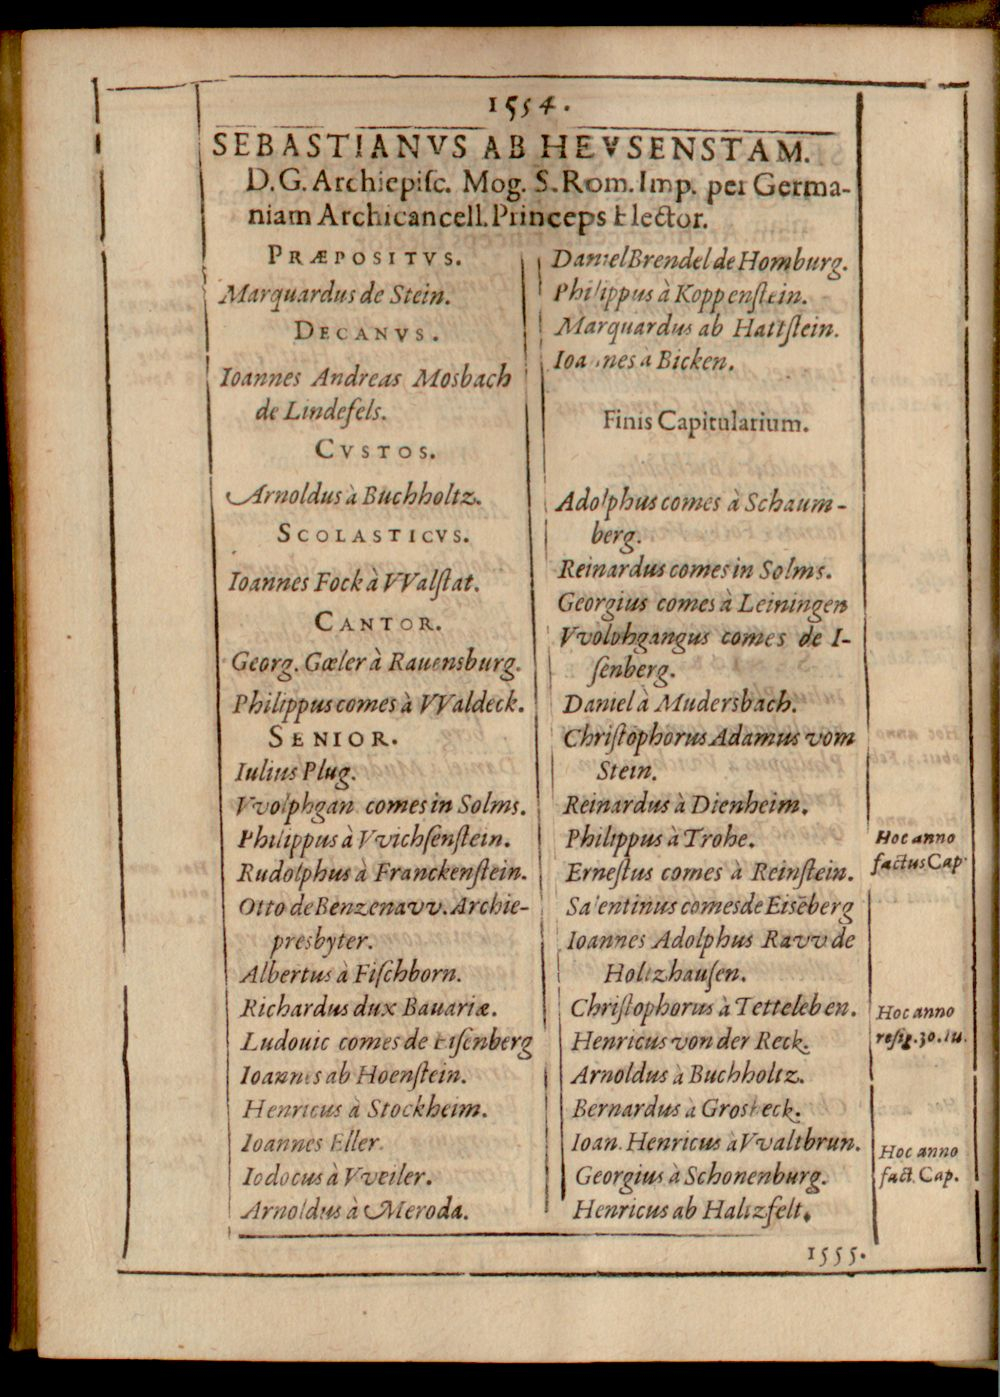 1554.
SEBASTIANVS AB HEVSENSTAM.
D.G. Archiepiſc. Mog. S. Rom. Imp. per Germa-
niam Archicancell. Princeps Elector.
PRÆPOSITVS.
Marquardus de Stein.
DECANVS.
Ioannes Andreas Mosbach
de Lindefels.
CVSTOS.
Arnoldus à Buchholtz.
SCOLASTICVS.
Ioannes Fock à VValſtat.
CANTOR.
Georg. Gœler à Rauensburg.
Philippus comes à VValdeck.
SENIOR.
Iulius Plug.
Vvolphgan comes in Solms.
Philippus à Vvichſenſtein.
Rudolphus à Franckenſtein.
Otto de Benzenavv. Archie-
presbyter.
Albertus à Fiſchborn.
Richardus dux Bauariæ.
Ludouic comes de Eiſenberg
Ioannes ab Hoenſtein.
Henricus à Stockheim.
Ioannes Eller.
Iodocus à Vveiler.
Arnoldus à Meroda.
Daniel Brendel de Homburg.
Philippus à Koppenſtein.
Marquardus ab Hattſtein.
Ioannes à Bicken.
Finis Capitularium.
Adolphus comes à Schaum-
berg.
Reinardus comes in Solms.
Georgius comes à Leiningen
Vvolphgangus comes de I-
ſenberg.
Daniel à Mudersbach.
Chriſtophorus Adamus vom
Stein.
Reinardus à Dienheim.
Philippus à Trohe.
Erneſtus comes à Reinſtein.
Salentinus comes de Eisēberg
Ioannes Adolphus Ravv de
Holtzhauſen.
Chriſtophorus à Tetteleben.
Henricus von der Reck.
Arnoldus à Buchholtz.
Bernardus à Grosbeck.
Ioan. Henricus à Vvaltbrun.
Georgius à Schonenburg.
Henricus ab Haltzfelt.
Hoc anno
factus Cap.
Hoc anno
reſig. 30. Iu.
Hoc anno
fact. Cap.
1555.